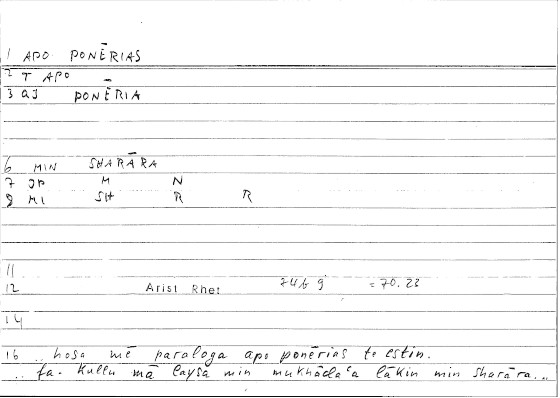 1 APO PONĒRIAS
2 T APO
3 aJ PONĒRIA
6 MIN SHARĀRA
7 JP M N
8 MI SH R R
11
12 Arist Rhet 74b 9 = 70.23
14
16 ..hosa mē paraloga apo ponērias te estin.
.. fa. Kullu mā laysa min mukhāda'a lākin min sharāra...